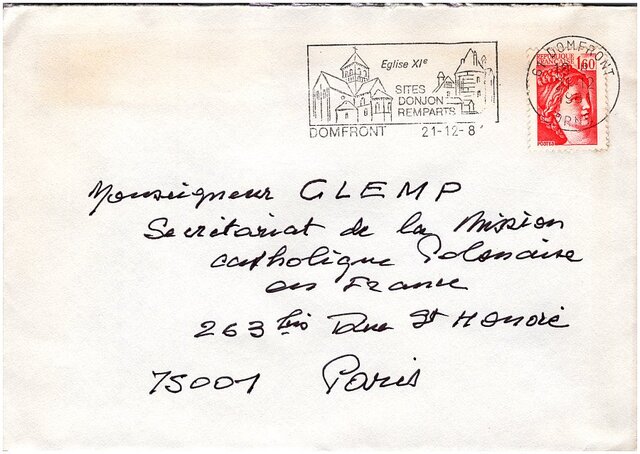 Eglise XIe
SITES
DONJON
REMPARTS
DOMFRONT 21-12-8
DOMFRONT
1,60
ORNE
Monseigneur GLEMP
Secrétariat de la Mission
catholique Polonaise
en France
263 bis Rue St Honoré
75001 Paris